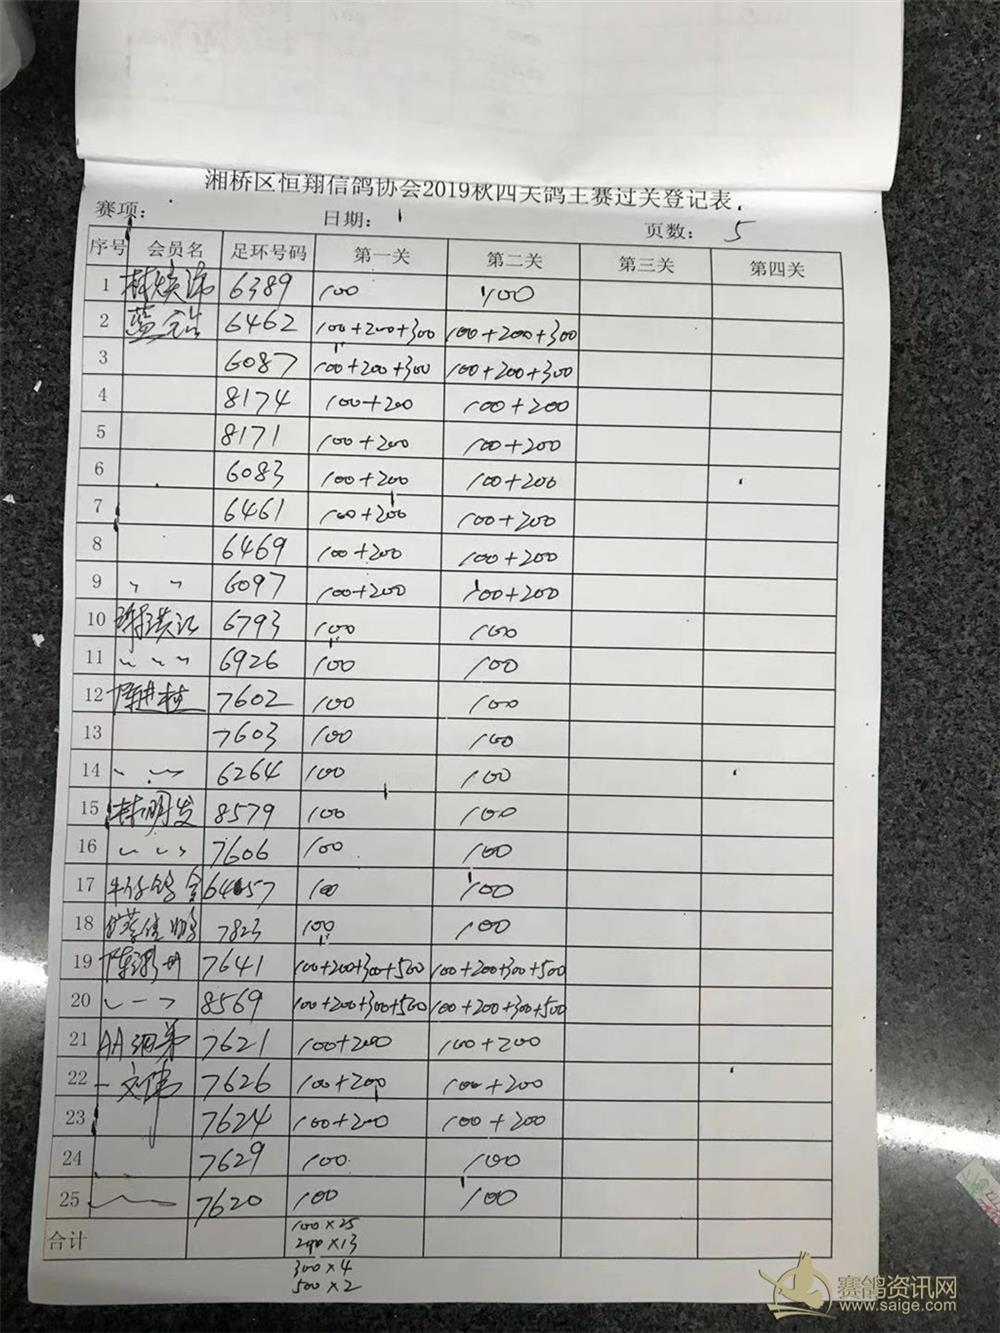 湘桥区恒翔信鸽协会2019秋四关鸽王赛过关登记表
赛项： 日期： 页数： 5
序号 会员名 足环号码 第一关 第二关 第三关 第四关
1 6389 100 100
2 蓝 6462 100+200+300 100+200+300
3 6087 100+200+300 100+200+300
4 8174 100+200 100+200
5 8171 100+200 100+200
6 6083 100+200 100+200
7 6461 100+200 100+200
8 6469 100+200 100+200
9 〃 〃 6097 100+200 100+200
10 6793 100 100
11 〃 〃 〃 6926 100 100
12 7602 100 100
13 7603 100 100
14 6264 100 100
15 林明发 8579 100 100
16 7606 100 100
17 牛仔鸽舍 6457 100 100
18 7823 100 100
19 7641 100+200+300+500 100+200+300+500
20 8569 100+200+300+500 100+200+300+500
21 AA 7621 100+200 100+200
22 一文伟 7626 100+200 100+200
23 7624 100+200 100+200
24 7629 100 100
25 7620 100 100
合计 100×25
200×13
300×4
500×2
赛鸽资讯网
www.saige.com